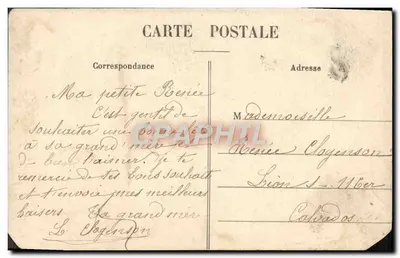 CARTE POSTALE
Correspondance
Adresse
Ma petite Renée
C'est gentil de
souhaiter une bonne fête
à sa grand' mère
de bien t'aimer. Je te
remercie de tes bons souhaits
et t'envoie mes meilleurs
baisers Ta grand mère
L. Clogenson
Mademoiselle
Renée Clogenson
Lion s. Mer
Calvados
CPAPHIL